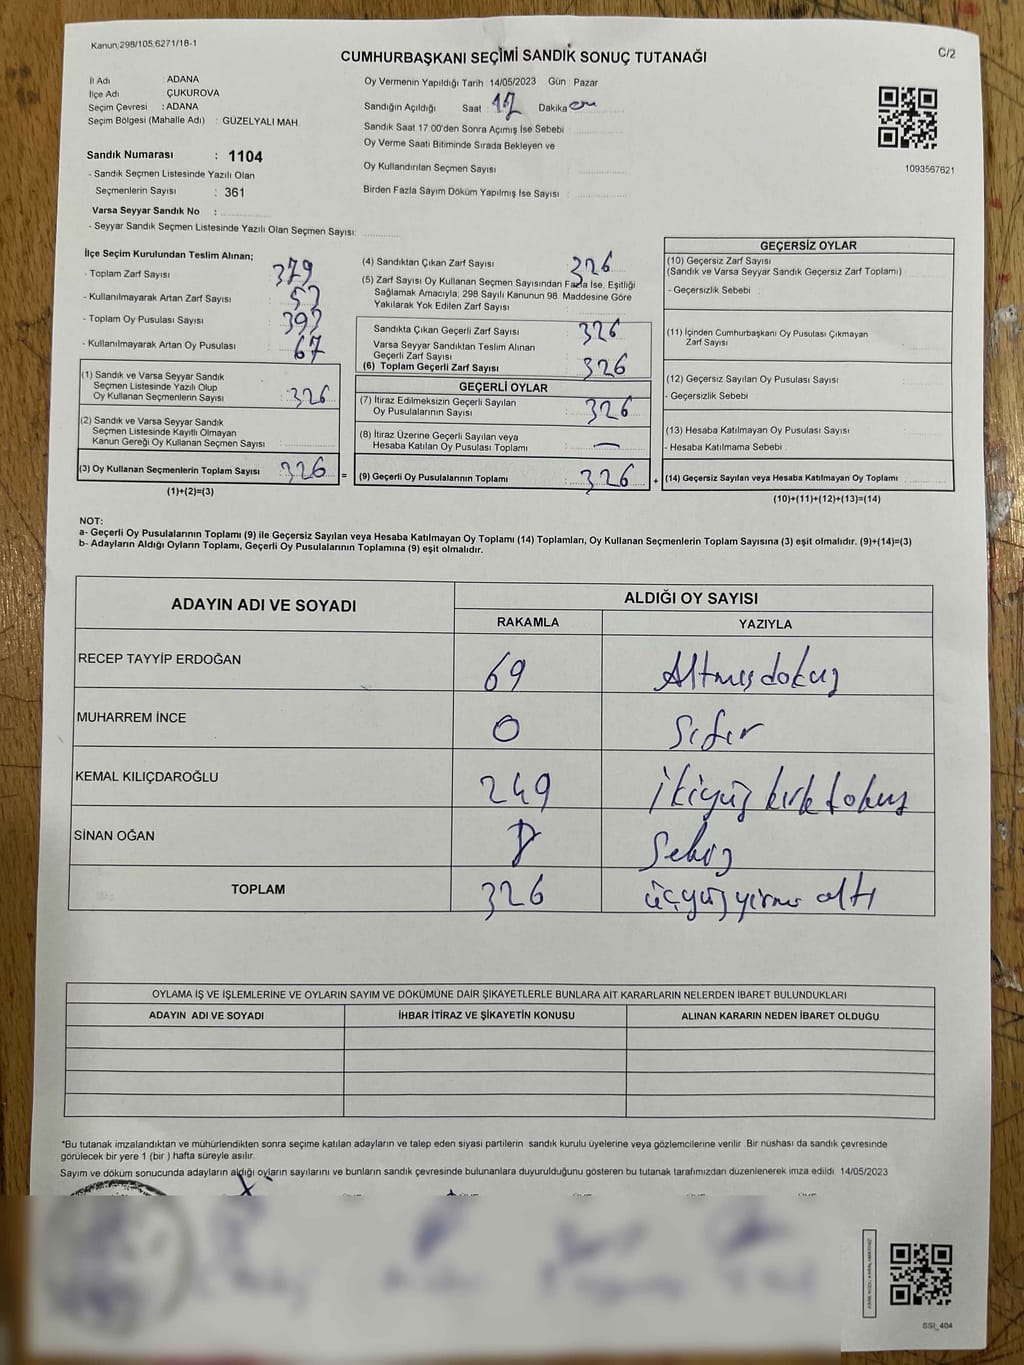 Kanun:298/105,6271/18-1
C/2
CUMHURBAŞKANI SEÇİMİ SANDIK SONUÇ TUTANAĞI
İl Adı ADANA
İlçe Adı ÇUKUROVA
Seçim Çevresi : ADANA
Seçim Bölgesi (Mahalle Adı) : GÜZELYALI MAH.
Sandık Numarası : 1104
- Sandık Seçmen Listesinde Yazılı Olan
Seçmenlerin Sayısı : 361
Varsa Seyyar Sandık No :
- Seyyar Sandık Seçmen Listesinde Yazılı Olan Seçmen Sayısı:
Oy Vermenin Yapıldığı Tarih : 14/05/2023 Gün : Pazar
Sandığın Açıldığı Saat : 17 Dakika
Sandık Saat 17:00'den Sonra Açımış İse Sebebi
Oy Verme Saati Bitiminde Sırada Bekleyen ve
Oy Kullandırılan Seçmen Sayısı
Birden Fazla Sayım Döküm Yapılmış İse Sayısı
1093567621
İlçe Seçim Kurulundan Teslim Alınan;
- Toplam Zarf Sayısı 379
- Kullanılmayarak Artan Zarf Sayısı 53
- Toplam Oy Pusulası Sayısı 393
- Kullanılmayarak Artan Oy Pusulası 67
(1) Sandık ve Varsa Seyyar Sandık
Seçmen Listesinde Yazılı Olup
Oy Kullanan Seçmenlerin Sayısı : 326
(2) Sandık ve Varsa Seyyar Sandık
Seçmen Listesinde Kayıtlı Olmayan
Kanun Gereği Oy Kullanan Seçmen Sayısı :
(3) Oy Kullanan Seçmenlerin Toplam Sayısı 326 =
(1)+(2)=(3)
(4) Sandıktan Çıkan Zarf Sayısı 326
(5) Zarf Sayısı Oy Kullanan Seçmen Sayısından Fazla İse, Eşitliği
Sağlamak Amacıyla; 298 Sayılı Kanunun 98. Maddesine Göre
Yakılarak Yok Edilen Zarf Sayısı :
Sandıkta Çıkan Geçerli Zarf Sayısı : 326
Varsa Seyyar Sandıktan Teslim Alınan
Geçerli Zarf Sayısı
(6) Toplam Geçerli Zarf Sayısı : 326
GEÇERLİ OYLAR
(7) İtiraz Edilmeksizin Geçerli Sayılan
Oy Pusulalarının Sayısı : 326
(8) İtiraz Üzerine Geçerli Sayılan veya
Hesaba Katılan Oy Pusulası Toplamı : —
(9) Geçerli Oy Pusulalarının Toplamı : 326 +
GEÇERSİZ OYLAR
(10) Geçersiz Zarf Sayısı
(Sandık ve Varsa Seyyar Sandık Geçersiz Zarf Toplamı)
- Geçersizlik Sebebi :
(11) İçinden Cumhurbaşkanı Oy Pusulası Çıkmayan
Zarf Sayısı
(12) Geçersiz Sayılan Oy Pusulası Sayısı
- Geçersizlik Sebebi
(13) Hesaba Katılmayan Oy Pusulası Sayısı
- Hesaba Katılmama Sebebi
(14) Geçersiz Sayılan veya Hesaba Katılmayan Oy Toplamı
(10)+(11)+(12)+(13)=(14)
NOT:
a- Geçerli Oy Pusulalarının Toplamı (9) ile Geçersiz Sayılan veya Hesaba Katılmayan Oy Toplamı (14) Toplamları, Oy Kullanan Seçmenlerin Toplam Sayısına (3) eşit olmalıdır. (9)+(14)=(3)
b- Adayların Aldığı Oyların Toplamı, Geçerli Oy Pusulalarının Toplamına (9) eşit olmalıdır.
ADAYIN ADI VE SOYADI ALDIĞI OY SAYISI
RAKAMLA YAZIYLA
RECEP TAYYİP ERDOĞAN 69 Altmışdokuz
MUHARREM İNCE 0 Sıfır
KEMAL KILIÇDAROĞLU 249 İkiyüz kırk dokuz
SİNAN OĞAN 8 Sekiz
TOPLAM 326 üçyüz yirmi altı
OYLAMA İŞ VE İŞLEMLERİNE VE OYLARIN SAYIM VE DÖKÜMÜNE DAİR ŞİKAYETLERLE BUNLARA AİT KARARLARIN NELERDEN İBARET BULUNDUKLARI
ADAYIN ADI VE SOYADI İHBAR İTİRAZ VE ŞİKAYETİN KONUSU ALINAN KARARIN NEDEN İBARET OLDUĞU
*Bu tutanak imzalandıktan ve mühürlendikten sonra seçime katılan adayların ve talep eden siyasi partilerin sandık kurulu üyelerine veya gözlemcilerine verilir. Bir nüshası da sandık çevresinde
görülecek bir yere 1 (bir ) hafta süreyle asılır.
Sayım ve döküm sonucunda adayların aldığı oyların sayılarını ve bunların sandık çevresinde bulunanlara duyurulduğunu gösteren bu tutanak tarafımızdan düzenlenerek imza edildi. 14/05/2023
SSI_404